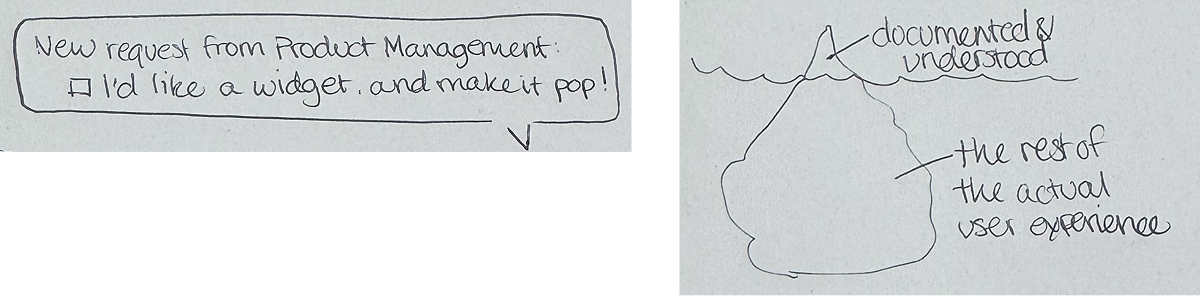 New request from Product Management:
☐ I'd like a widget. and make it pop!
documented &
understood
the rest of
the actual
user experience